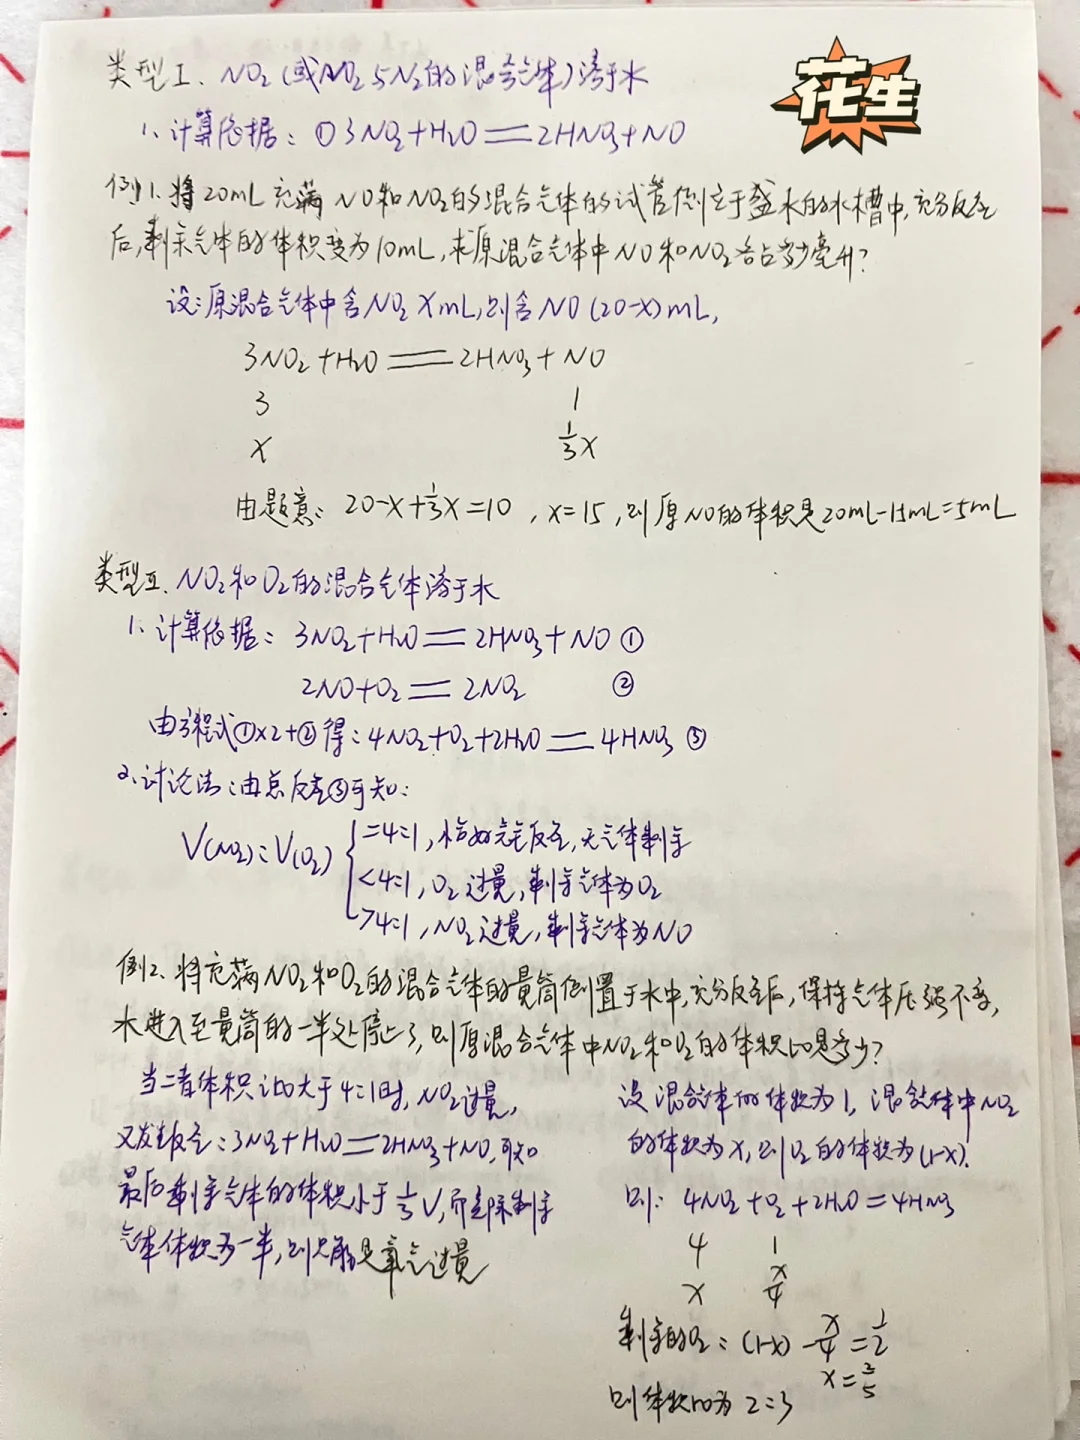 花生
类型Ⅰ、NO₂(或NO₂与N₂的混合气体)溶于水
1、计算依据：①3NO₂+H₂O══2HNO₃+NO
例1、将20mL充满NO和NO₂的混合气体的试管倒立于盛水的水槽中,充分反应
后,剩余气体的体积变为10mL,求原混合气体中NO和NO₂各占多少毫升?
设：原混合气体中含NO₂ XmL,则含NO(20-x)mL,
3NO₂+H₂O══2HNO₃+NO
3 1
x ⅓x
由题意：20-x+⅓x=10，x=15,则原NO的体积是20mL-15mL=5mL
类型Ⅱ、NO₂和O₂的混合气体溶于水
1、计算依据：3NO₂+H₂O══2HNO₃+NO ①
2NO+O₂══2NO₂ ②
由方程式①×2+②得：4NO₂+O₂+2H₂O══4HNO₃ ③
2、讨论法：由总反应③可知：
V(NO₂):V(O₂)
=4:1,恰好完全反应,无气体剩余
<4:1,O₂过量,剩余气体为O₂
>4:1,NO₂过量,剩余气体为NO
例2、将充满NO₂和O₂的混合气体的量筒倒置于水中,充分反应后,保持气体压强不变,
水进入至量筒的一半处停止了,则原混合气体中NO₂和O₂的体积比是多少?
当二者体积比大于4:1时,NO₂过量,
又发生反应：3NO₂+H₂O══2HNO₃+NO,可知
最后剩余气体的体积小于⅓V,而实际剩余
气体体积为一半,则只能是氧气过量
设混合气体的体积为1,混合气体中NO₂
的体积为x,则O₂的体积为(1-x).
则：4NO₂+O₂+2H₂O=4HNO₃
4 1
x x/4
剩余的O₂：(1-x)-x/4=1/2
x=2/5
则体积比为2:3